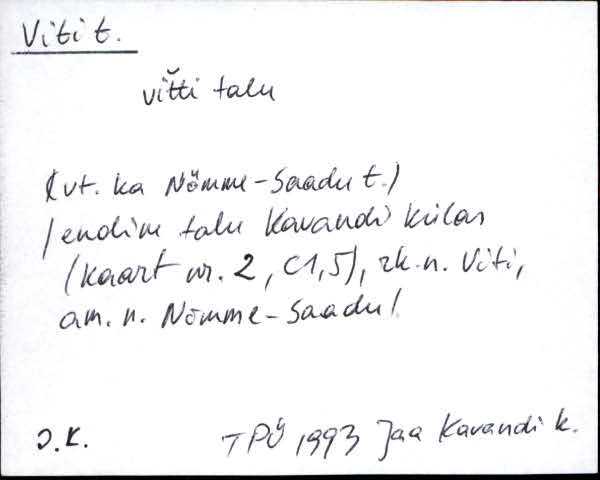 Viti t.
vitti talu
(vt. ka Nõmme-Saadu t.)
/endine talu Kavandi külas
(kaart nr. 2, C1,5), rk. n. Viti,
am. n. Nõmme-Saadu/
J.K.
TPÜ 1993 Jaa Kavandi k.